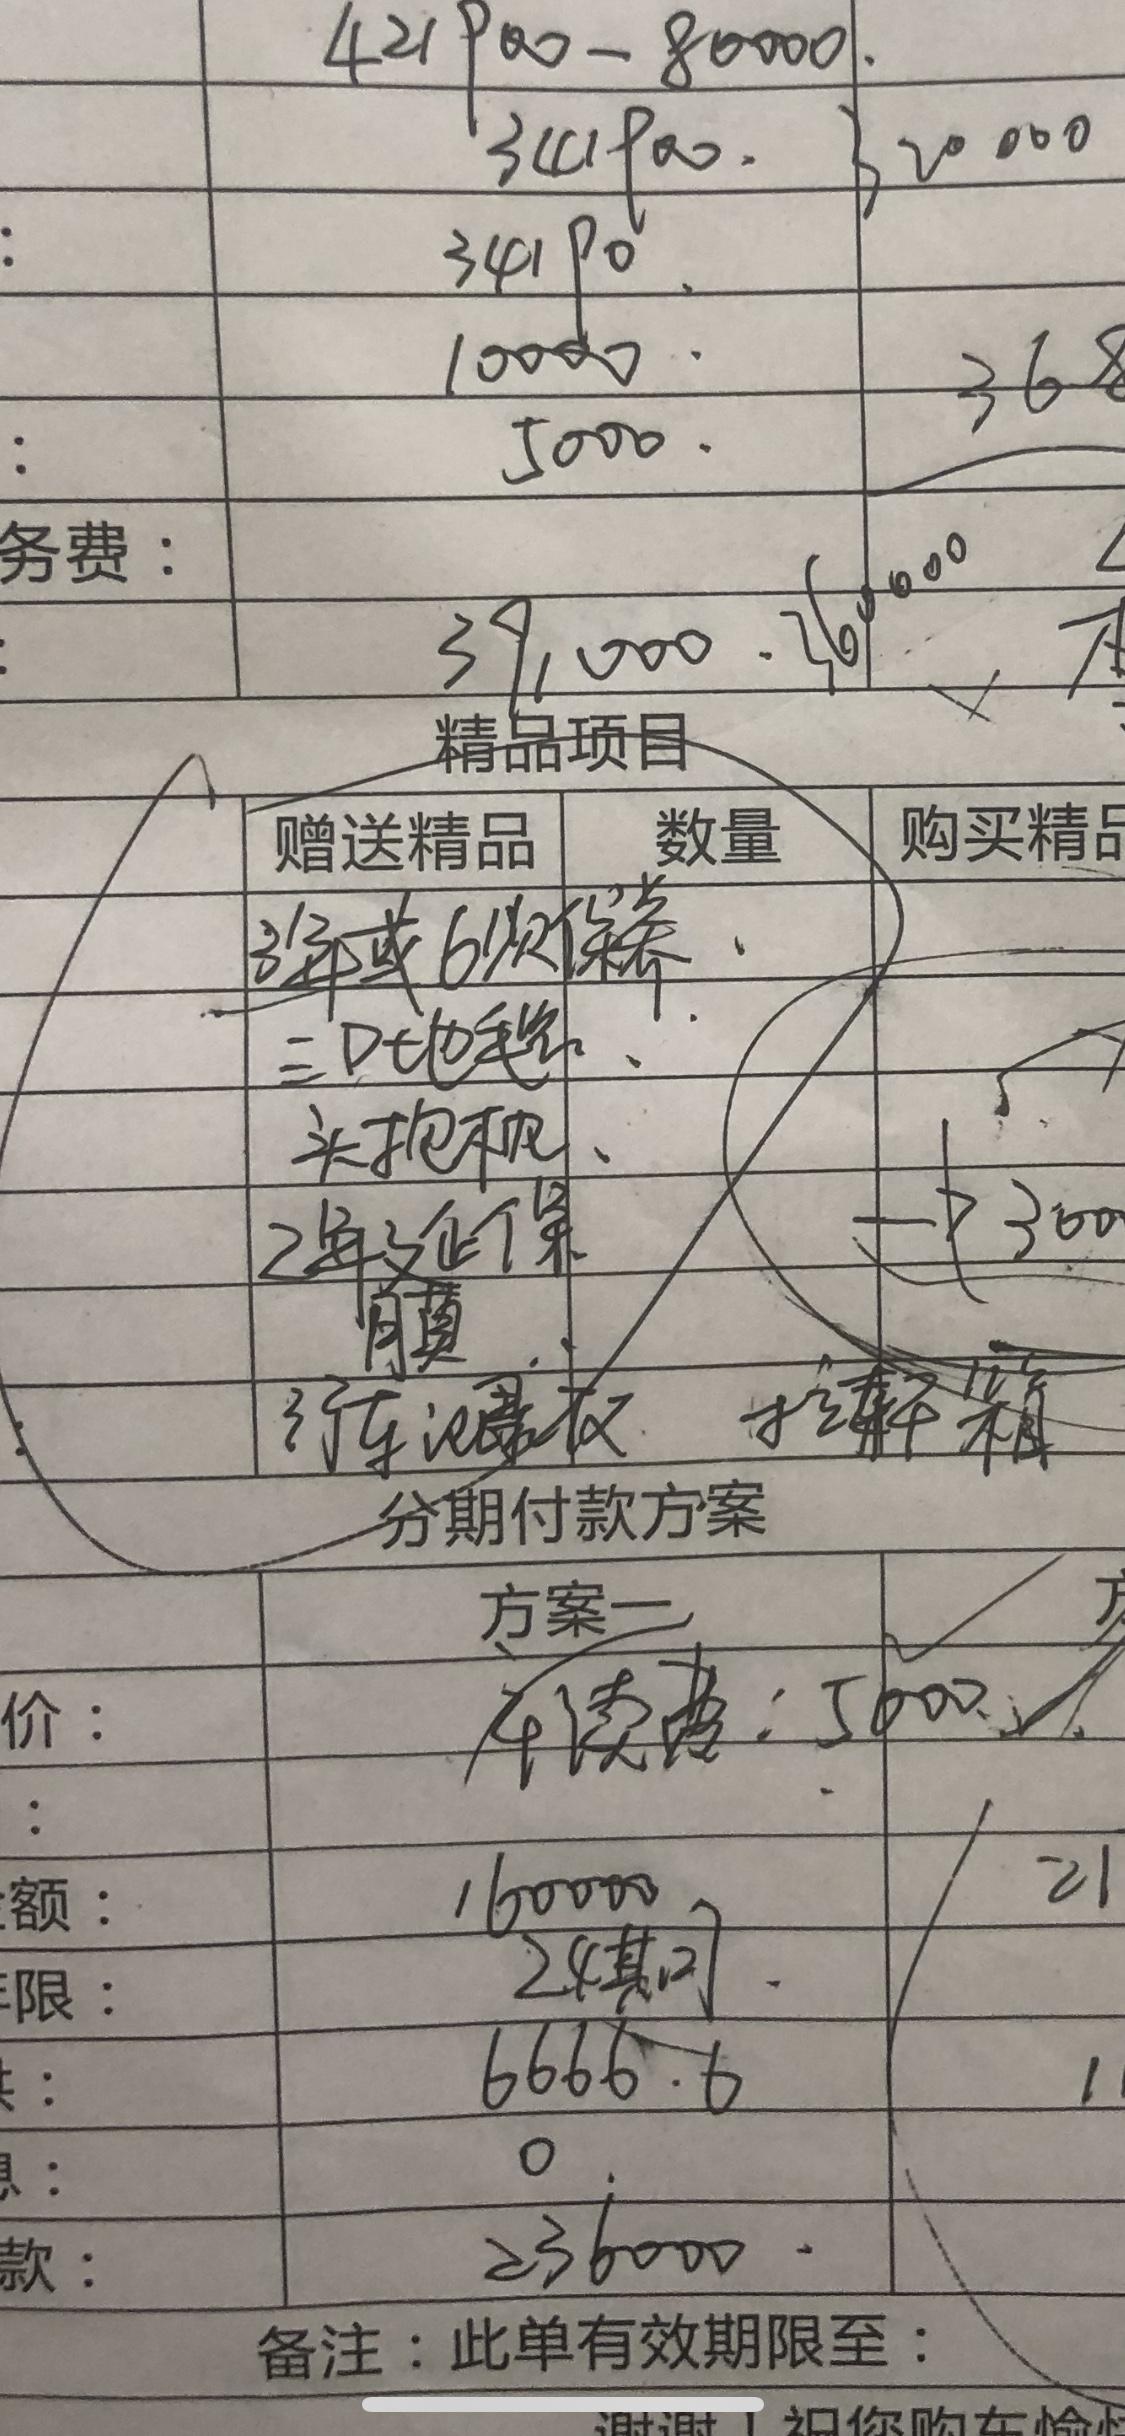 421900-80000.
341900. } 20000
: 34190.
10000.
368
: 5000.
务费：
: 39,000. 360000
精品项目
赠送精品 数量 购买精品
3年或6次保养、
三D地毯、
头抱枕、
2年延保
膜
行车记录仪 拉杆箱
分期付款方案
方案一 方
价： 手续费：5000.
：
额： 160000
限： 24期
： 6666.6
息： 0.
款： 236000.
备注：此单有效期限至：
谢谢！祝您购车愉快